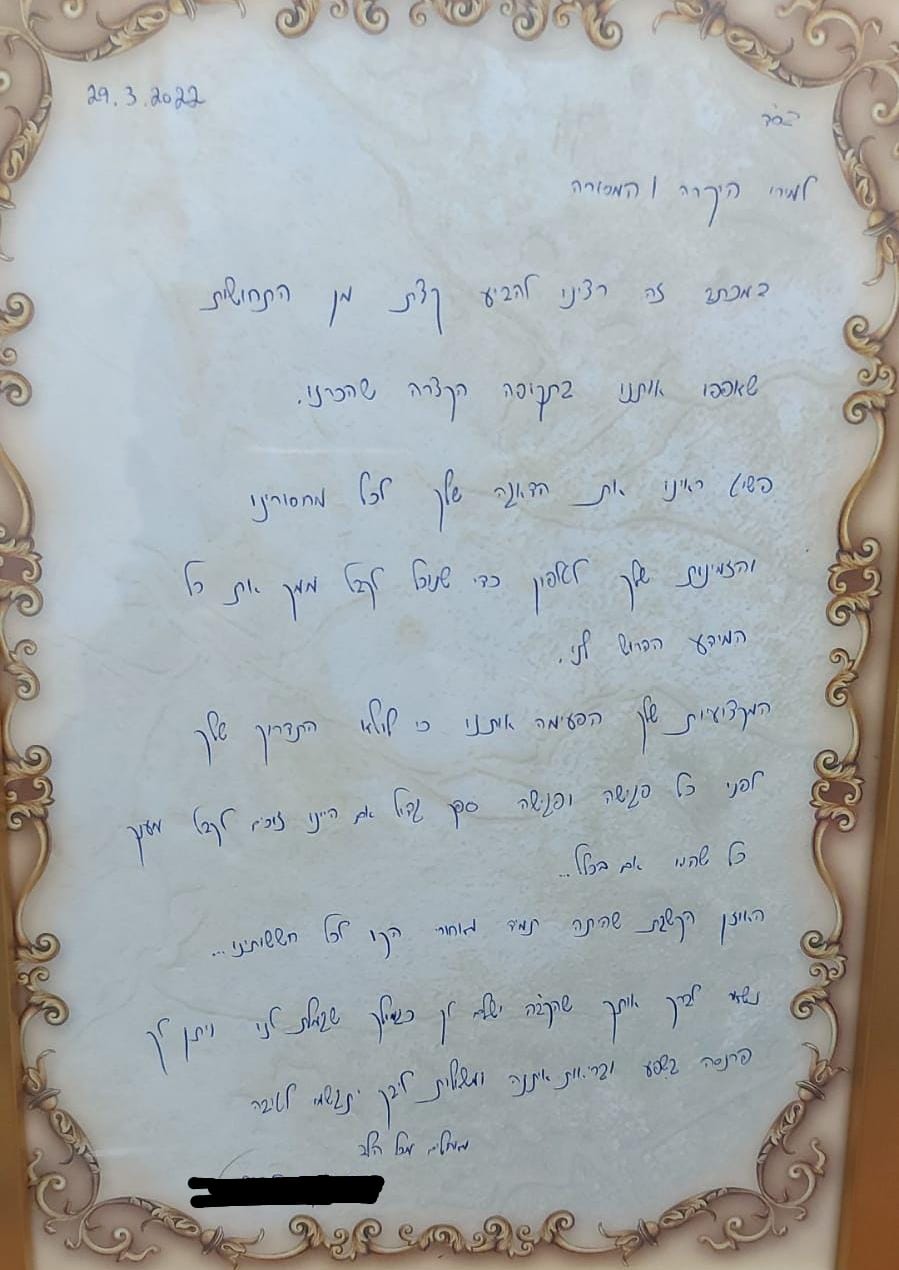 29.3.2022
בס"ד
למירי היקרה והמסורה
במכתב זה רצינו להביע קצת מן התחושות
שאפפו אותנו בתקופה הקצרה שהכרנו.
פשוט ראינו את הדאגה שלך לכל מחסורינו
והזמינות שלך לטלפון כדי שנוכל לקבל ממך את כל
המידע הדרוש לנו.
המקצועיות שלך הפעימה אותנו כי לולא התדרוך שלך
לפני כל פגישה ופגישה ספק גדול אם היינו זוכים לקבל מענק
כל שהוא אם בכלל...
האוזן הקשבת שהיתה תמיד מאחורי הקו לכל חששותינו...
נשאר לברך אותך שהקב"ה ישלם לך כגמולך שגמלת לנו ויתן לך
פרנסה בשפע ובריאות איתנה ומשאלות ליבך יתגשמו לטובה
מאחלים מכל הלב